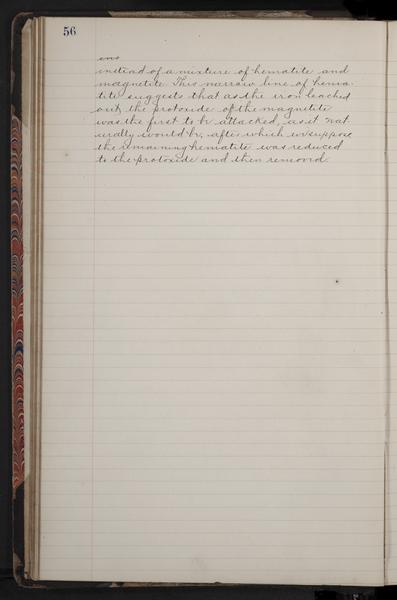 56
ens
instead of a mixture of hematite and
magnetite. This narrow line of hema-
tite suggests that as the iron leached
out, the protoxide of the magnetite
was the first to be attacked, as it nat
urally would be, after which we suppose
the remaining hematite was reduced
to the protoxide and then removed.